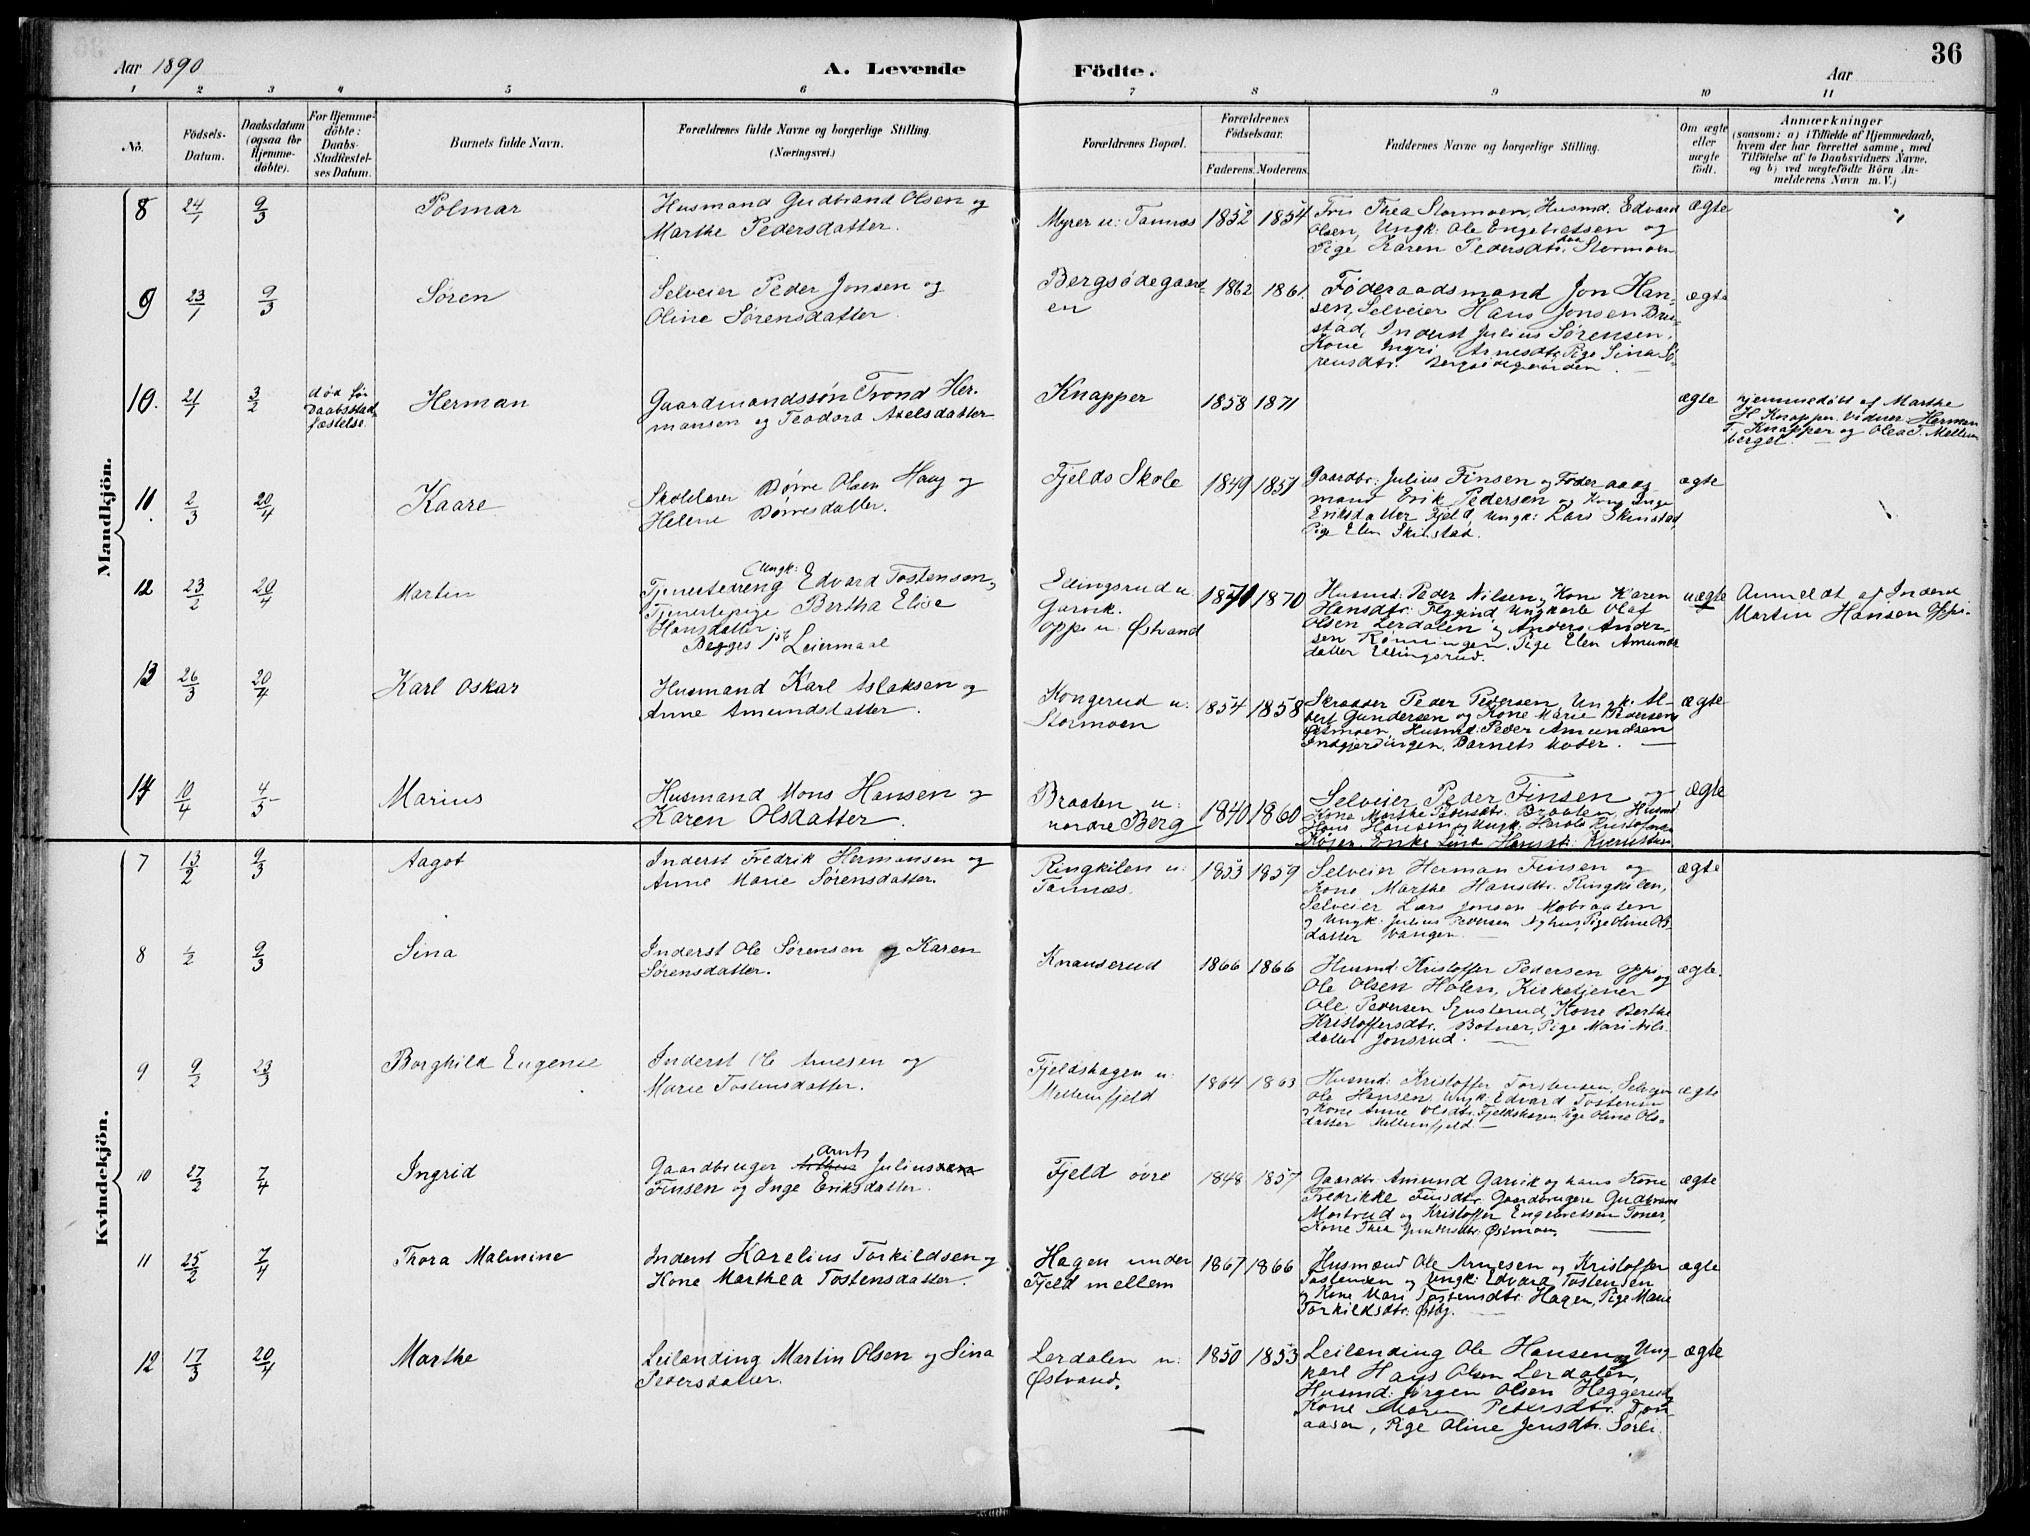 36
Aar 1890
A. Levende Födte.
Aar
1 2 3 4 5 6 7 8 9 10 11
No.
Födsels-
Datum.
Daabsdatum
(ogsaa for
Hjemme-
döbte).
For Hjemme-
döbte:
Daabs-
Stadfæstel-
ses Datum.
Barnets fulde Navn.
Forældrenes fulde Navne og borgerlige Stilling.
(Næringsvei.)
Forældrenes Bopæl.
Forældrenes
Födselsaar.
Faderens. Moderens.
Faddernes Navne og borgerlige Stilling.
Om ægte
eller
uægte
födt.
Anmærkninger
(saasom: a) i Tilfælde af Hjemmedaab,
hvem der har forrettet samme, med
Tilföielse af to Daabsvidners Navne,
og b) ved uægtefödte Börn An-
melderens Navn m. V.)
Mandkjön.
8 24/1 9/3 Polmar
Husmand Gudbrand Olsen og
Marthe Pedersdatter.
Myrer u: Tannæs 1852 1854
Fru Thea Stormoen, Husmd. Edvard
Olsen, Ungk: Ole Engebretsen og
Pige Karen Pedersdtr. Stormoen
ægte
9 23/1 9/3 Søren
Selveier Peder Jonsen og
Oline Sørensdatter.
Bergsødegaard-
en
1862 1861.
Føderaadsmand Jon Han-
sen, Selveier Hans Jonsen
Inderst Julius Sørensen,
Kone Ingri Arnesdtr. Pige Sina Sø-
rensdtr. Bergsødegaarden
ægte
10. 21/1 3/2
død før
Daabsstad
fæstelse.
Herman
Gaardmandssøn Trond Her-
mansen og Teodora Axelsdatter
Knapper 1858 1871 ægte
Hjemmedøbt af Marthe
H. Knapper. Vidner Herman
T. Knapper og Olea T. Mellem
berget.
11. 2/3 20/4 Kaare
Skolelærer Børre Olsen Haug og
Helene Børresdatter.
Fjelds Skole 1849 1851
Gaardbr: Julius Finsen og Føderaads-
mand Erik Pedersen og Kone Inge
Eriksdatter Fjeld, Ungk: Lars Skinstad,
Pige Elen Skinstad.
ægte
12 23/2 20/4 Martin
(Ungk:
Tjenestedreng Edvard Tostensen,
Tjenestepige Bertha Elise
Hansdatter.
Begges 1ste Leiermaal
Elingsrud u:
Garvik.
Oppi u: Østvand
1870 1870
Husmd: Peder Nilsen, Kone Karen
Hansdtr. Flygind, Ungkarle Olaf
Olsen Lerdalen og Anders Ander-
sen Rønningen. Pige Elen Amunds
datter Ellingsrud.
uægte
Anmeldt af Inderst
Martin Hansen Oppi.
13 26/3 20/4 Karl Oskar
Husmand Karl Aslaksen og
Anne Amundsdatter.
Kongerud u:
Stormoen
1854 1858
Skrædder Peder Pedersen, Ungk: Al-
bert Gundersen og Kone Marie Pedersen
Østmoen, Husmd: Peder Amundsen
Indgjerdingen, Barnets Moder.
ægte
14 10/4 4/5 Marius
Husmand Mons Hansen og
Karen Olsdatter.
Braaten u:
nordre Berg
1840 1860
Selveier Peder Finsen og
Kone Marthe Pedersdtr. Braaten, Husmd
Hans Hansen og Ungk: Harald Kristoffersen
ægte
Kvindekjön.
7 13/2 9/3 Aagot
Inderst Fredrik Hermansen og
Anne Marie Sørensdatter.
Ringkilen u:
Tannæs.
1853 1859
Selveier Herman Finsen og
Kone Marthe Hansdtr. Ringkilen,
Selveier Lars Jonsen Mobraaten
og Ungk: Julius Pedersen Nyhus, Pige Oline Ols
datter Vangen
ægte
8 1/2 9/3 Sina
Inderst Ole Sørensen og Karen
Sørensdatter.
Knauserud 1866 1866
Husmd: Kristoffer Pedersen Oppi og
Ole Olsen Holen, Kirketjener
Ole Pedersen Kone Berthe
Kristoffersdtr. Botner, Pige Mari Nils
datter Jonsrud.
ægte.
9 9/2 23/3 Borghild Eugenie
Inderst Ole Arnesen og
Marie Tostensdatter.
Fjeldshagen u:
Mellemfjeld
1864 1863
Husmd: Kristoffer Torstensen, Selveier
Ole Hansen, Ungk: Edvard Tostensen
og Kone Anne Olsdtr. Fjeldshagen, Pige Oline Ols-
datter Mellemfjeld.
ægte
10 27/2 7/4 Ingrid
Arnts
Gaardbruger Julius
Finsen og Inge Eriksdatter.
Fjeld øvre 1848 1857
Gaardbr. Amund Garvik og hans Kone
Fredrikke Finsdtr. Gaardbrugere Gudbrand
Mostrud og Kristoffer Engebretsen Toner,
Kone Thea Gundersdtr. Østmoen
ægte
11 25/2 7/4 Thora Malmine
Inderst Karelius Torkildsen og
Kone Marthea Tostensdatter.
Hagen under
Fjeld mellem
1867 1866
Husmænd Ole Arnesen og Kristoffer
Tostensen og Ungk: Edvard Tostensen
og Kone Mari Tostensdtr. Hagen, Pige Marie
Torkildsdtr. Østby.
ægte
12 17/3 20/4 Marthe
Leilænding Martin Olsen og Sina
Pedersdatter.
Lerdalen u:
Østvand.
1850 1853
Leilænding Ole Hansen og Ung-
karl Hans Olsen Lerdalen,
Husmd: Jørgen Olsen Heggerud,
Kone Maren Petersdtr. Ton-
aasen, Pige Oline Jensdtr. Sørli.
ægte